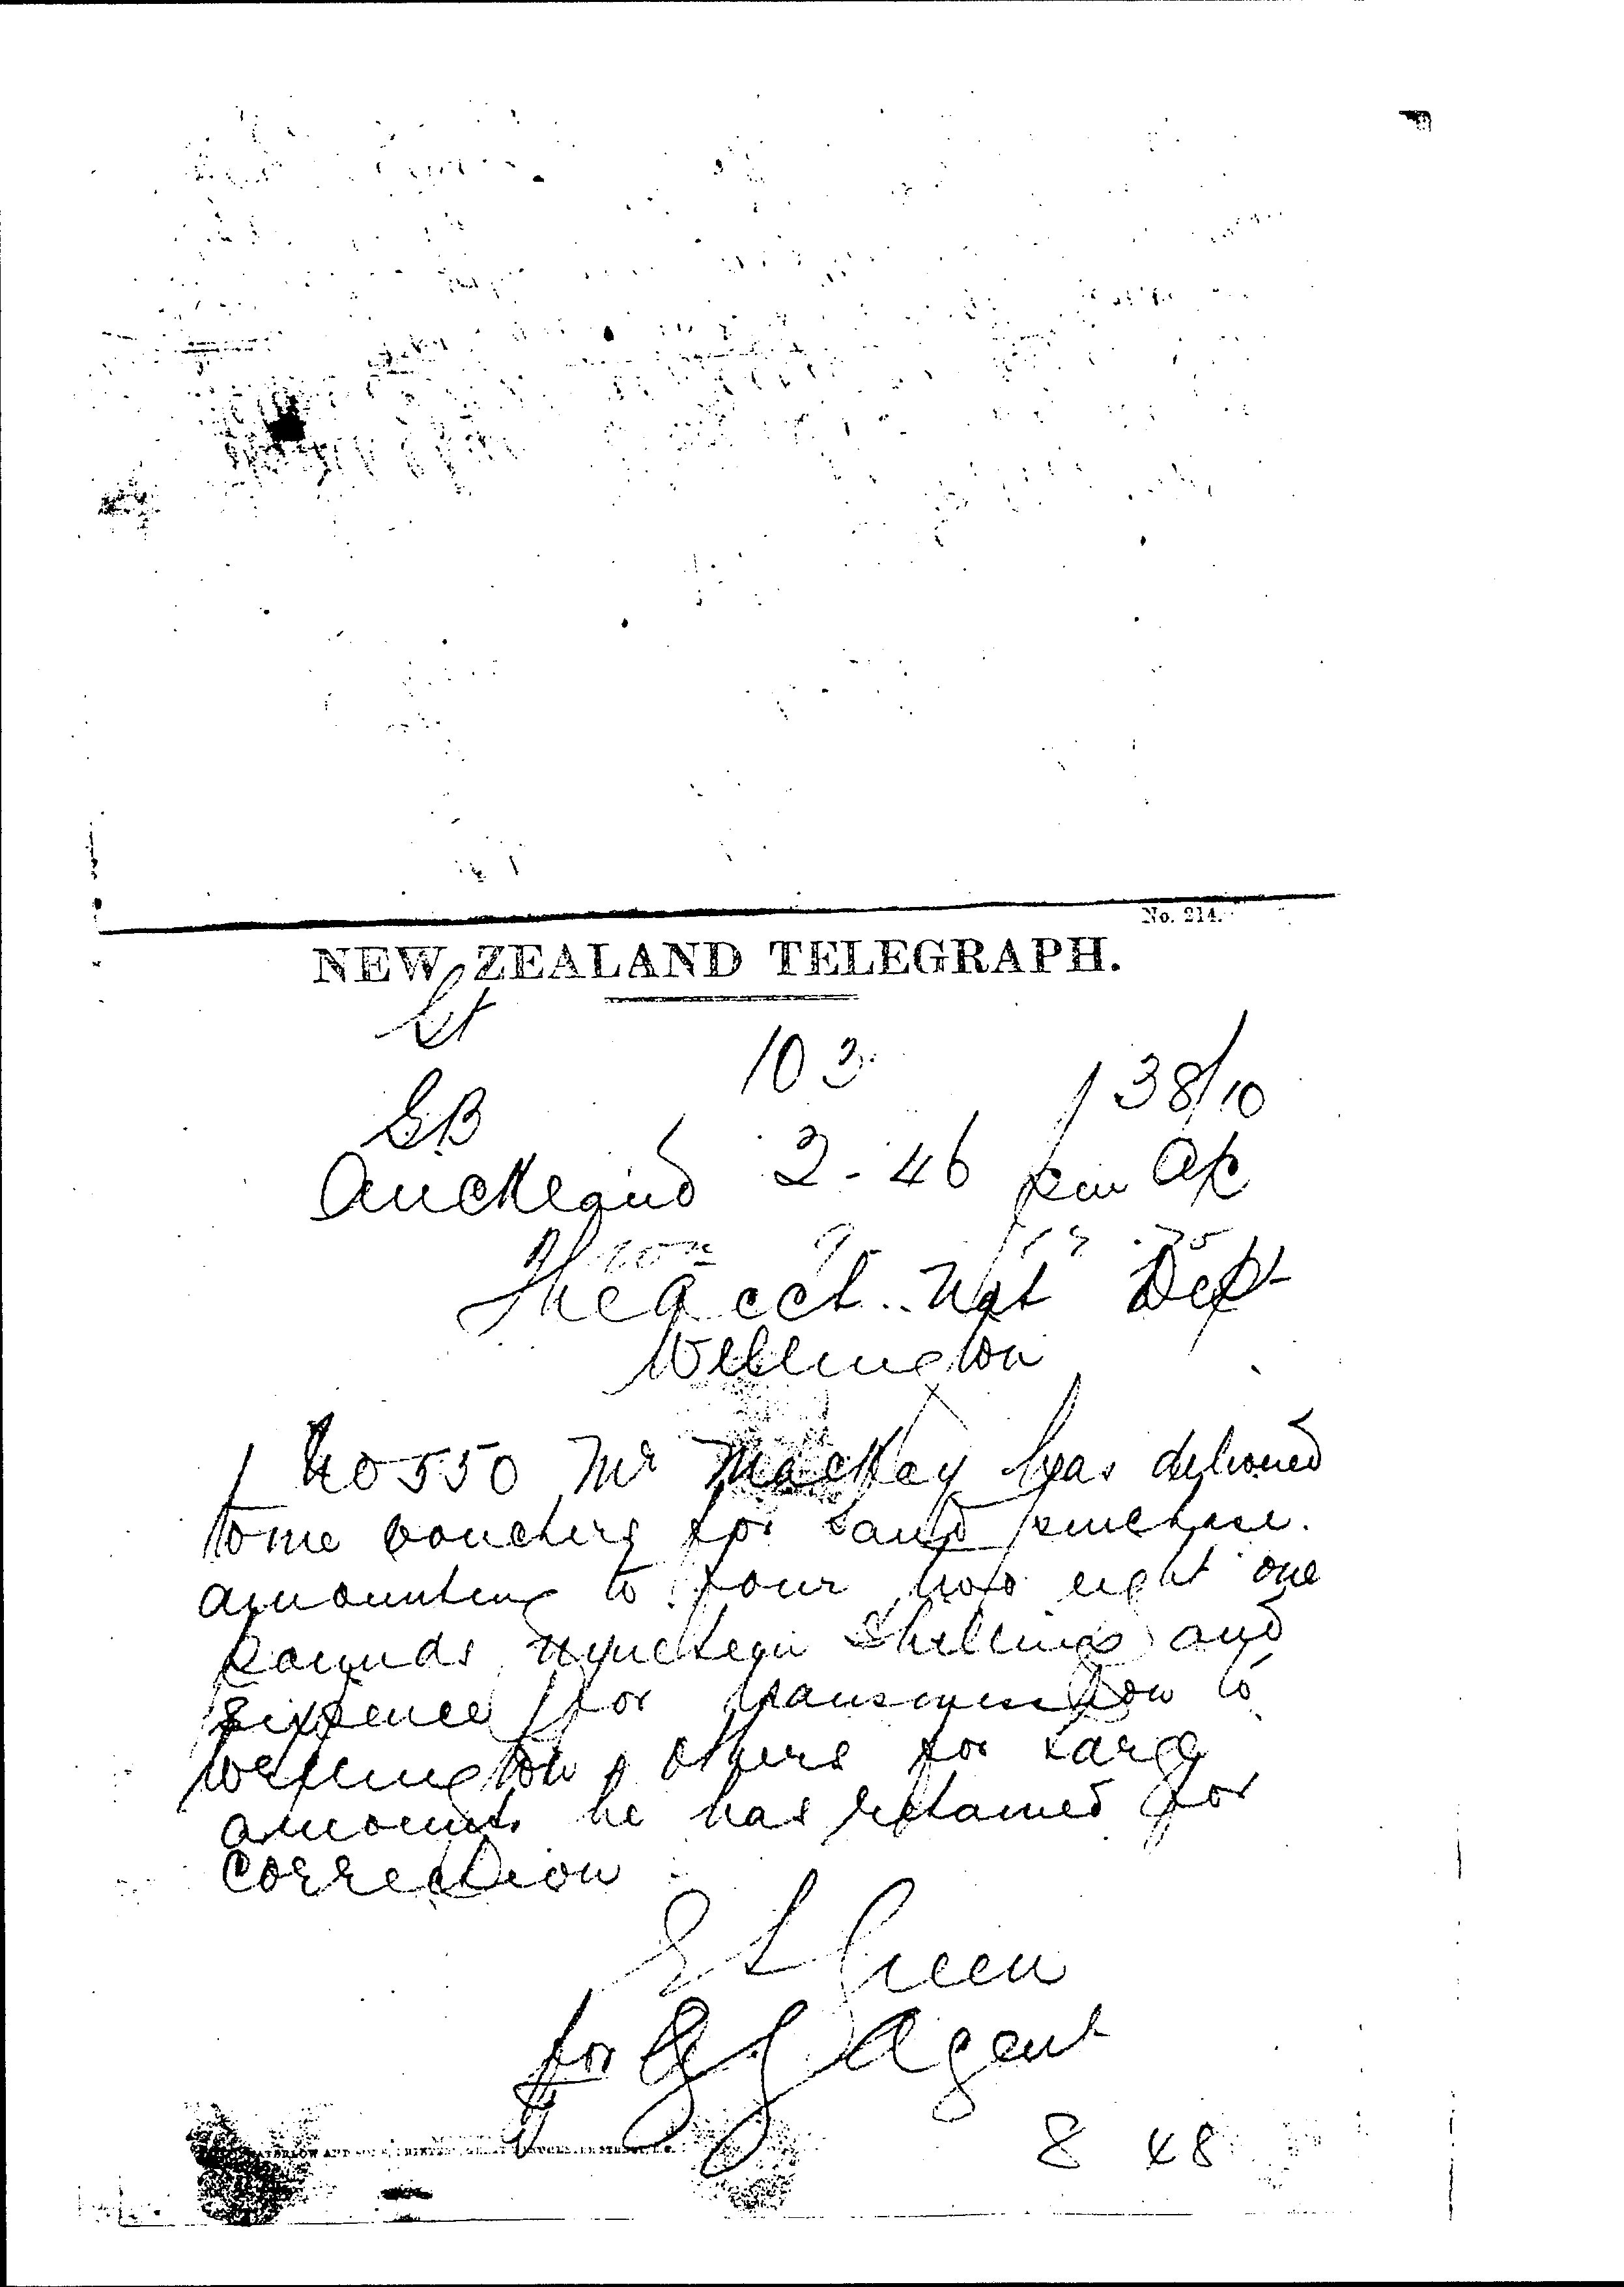 No. 214.
NEW ZEALAND TELEGRAPH.
103
38/10
GB
Auckland 2-46 pm
The acct. Nat Dept
Wellington
No 550 Mr Mackay has delivered
to me vouchers for Land purchase.
amounting to four two eight one
pounds nineteen shillings and
sixpence for transmission to
Wellington others for large
amounts he has retained for
correction
E L Green
for Agent
8 48